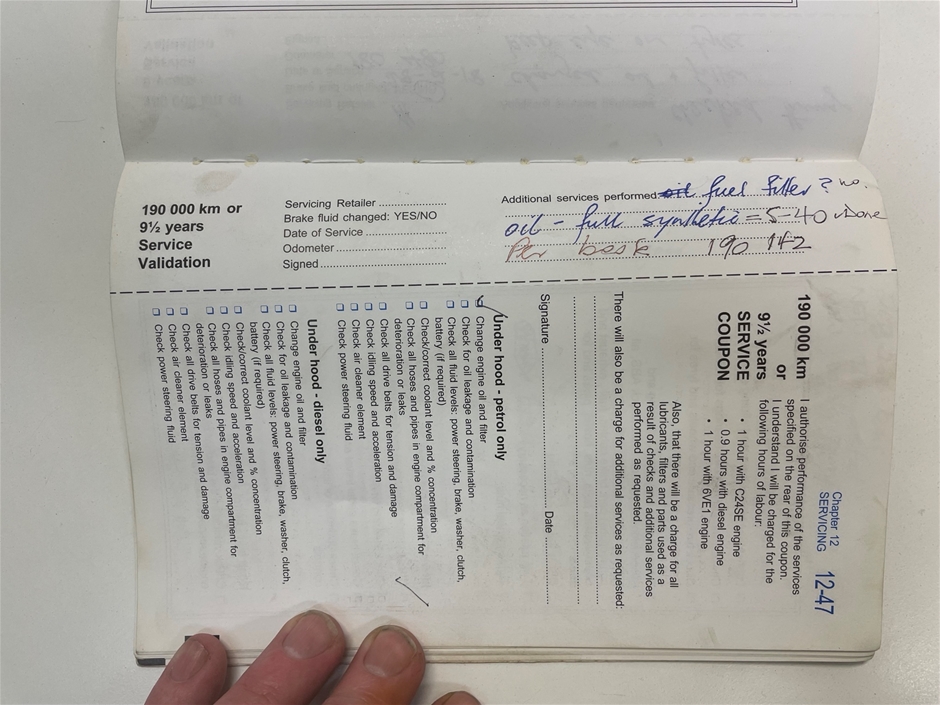 190 000 km or
9½ years
Service
Validation
Servicing Retailer
Brake fluid changed: YES/NO
Date of Service
Odometer
Signed
Additional services performed oil fuel filter? no.
oil - full synthetic = 5-40 Done
Per book 190 142
Chapter 12
SERVICING 12-47
190 000 km
or
9½ years
SERVICE
COUPON
I authorise performance of the services
specified on the rear of this coupon.
I understand I will be charged for the
following hours of labour:
• 1 hour with C24SE engine
• 0.9 hours with diesel engine
• 1 hour with 6VE1 engine
Also, that there will be a charge for all
lubricants, filters and parts used as a
result of checks and additional services
performed as requested.
There will also be a charge for additional services as requested:
Signature Date
Under hood - petrol only
Change engine oil and filter
Check for oil leakage and contamination
Check all fluid levels: power steering, brake, washer, clutch,
battery (if required)
Check/correct coolant level and % concentration
Check all hoses and pipes in engine compartment for
deterioration or leaks
Check all drive belts for tension and damage
Check idling speed and acceleration
Check air cleaner element
Check power steering fluid
Under hood - diesel only
Change engine oil and filter
Check for oil leakage and contamination
Check all fluid levels: power steering, brake, washer, clutch,
battery (if required)
Check/correct coolant level and % concentration
Check idling speed and acceleration
Check all hoses and pipes in engine compartment for
deterioration or leaks
Check all drive belts for tension and damage
Check air cleaner element
Check power steering fluid